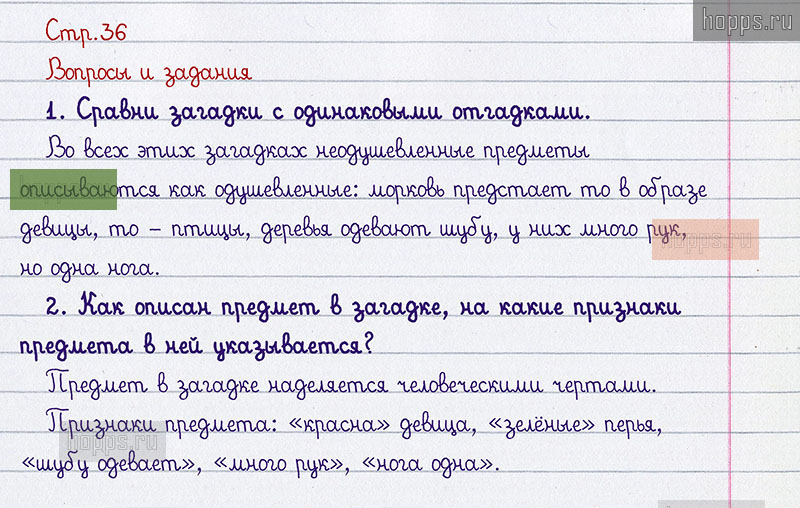 hopps.ru
Стр.36
Вопросы и задания
1. Сравни загадки с одинаковыми отгадками.
Во всех этих загадках неодушевленные предметы
описываются как одушевленные: морковь предстает то в образе
девицы, то – птицы, деревья одевают шубу, у них много рук,
hopps.ru
но одна нога.
2. Как описан предмет в загадке, на какие признаки
предмета в ней указывается?
Предмет в загадке наделяется человеческими чертами.
Признаки предмета: «красна» девица, «зелёные» перья,
hopps.ru
«шубу одевает», «много рук», «нога одна».